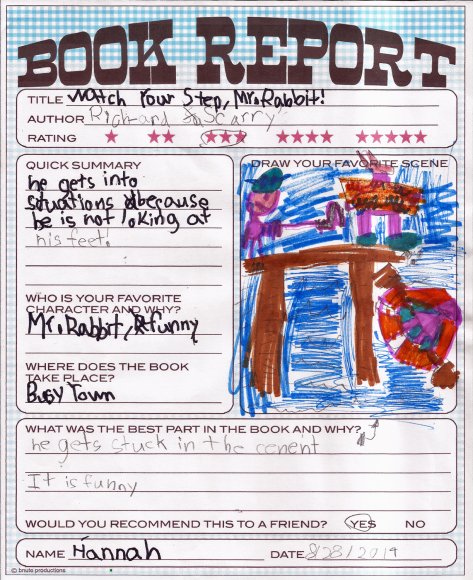 BOOK REPORT
TITLE Watch Your Step, Mr. Rabbit!
AUTHOR Richard Scarry
RATING
QUICK SUMMARY
he gets into
situations because
he is not loking at
his feet!
DRAW YOUR FAVORITE SCENE
WHO IS YOUR FAVORITE
CHARACTER AND WHY?
Mr. Rabbit, funny
WHERE DOES THE BOOK
TAKE PLACE?
Busy Town
WHAT WAS THE BEST PART IN THE BOOK AND WHY?
he gets stuck in the cement
It is funny
WOULD YOU RECOMMEND THIS TO A FRIEND? YES NO
NAME Hannah DATE 8/28/2019
© bnute productions